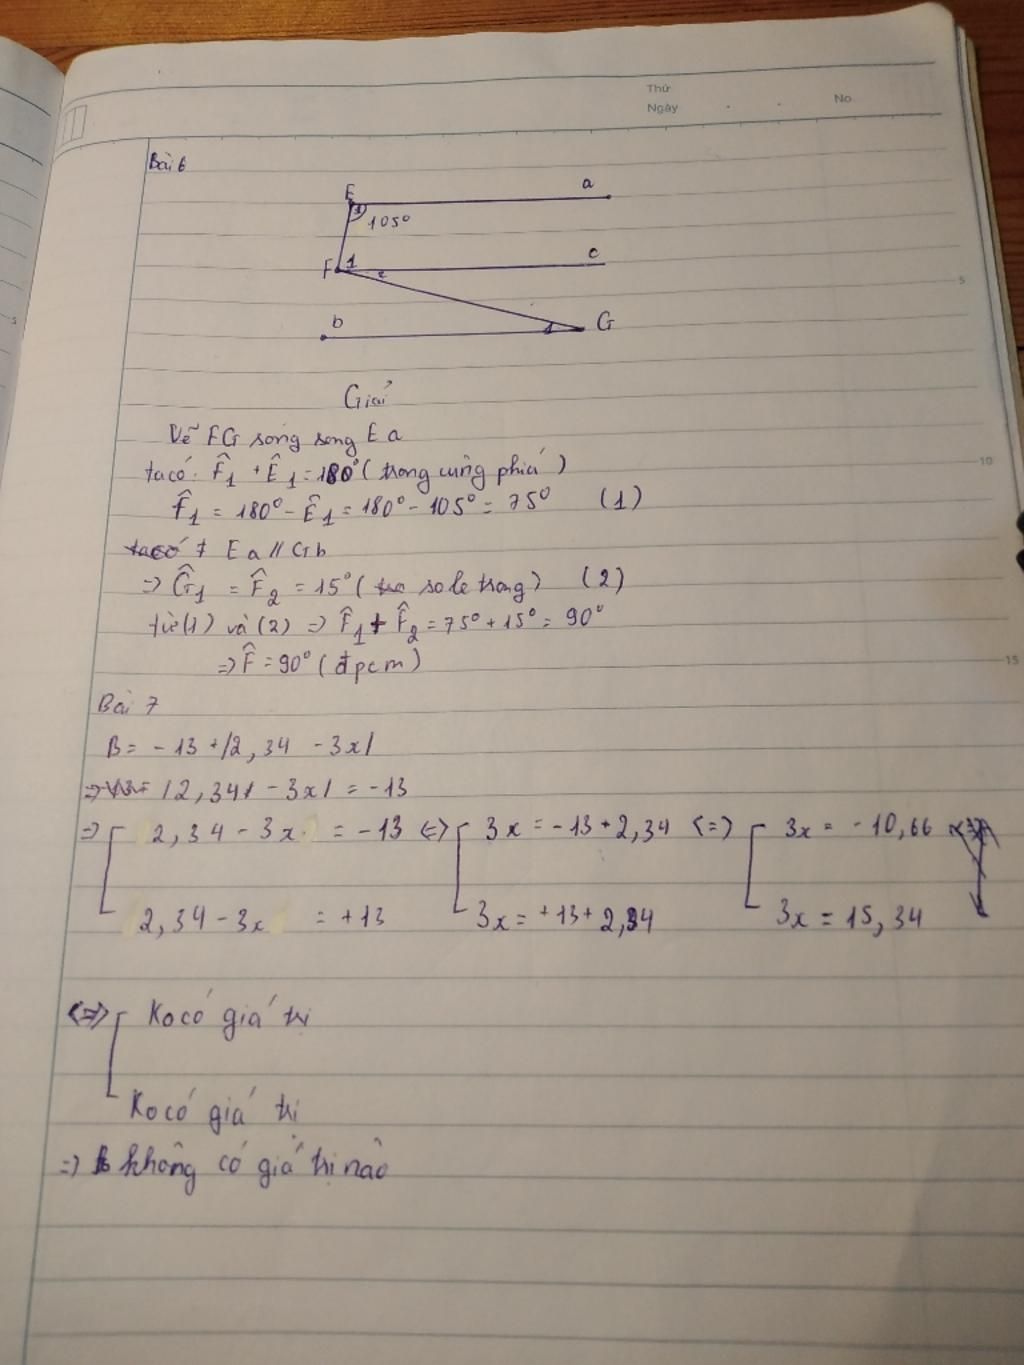 Thứ
Ngày
No
Bài 6
E
a
1
105°
F
1
2
c
b
1
G
5
5
Giải
Vẽ FG sóng song Ea
ta có: F̂₁ + Ê₁ = 180° (trong cùng phía)
F̂₁ = 180° - Ê₁ = 180° - 105° = 75° (1)
10
Ea // Gb
=> Ĝ₁ = F̂₂ = 15° (so le trong) (2)
từ (1) và (2) => F̂₁ + F̂₂ = 75° + 15° = 90°
=> F̂ = 90° (đpcm)
15
Bài 7
B = - 13 + |2,34 - 3x|
=> |2,34 - 3x| = -13
=> [ 2,34 - 3x = -13 <=> [ 3x = -13 + 2,34 <=> [ 3x = -10,66
2,34 - 3x = +13 3x = +13 + 2,34 3x = 15,34
<=> [ Ko có giá trị
Ko có giá trị
=> không có giá trị nào